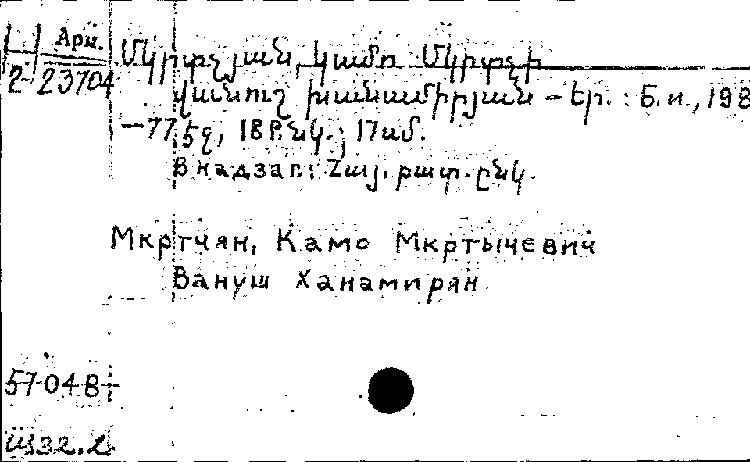 Арм.
2-23704
Մկրտչյան, Կամո Մկրտչի
Վանուշ Խանամիրյան - Եր. : Б. и., 198
—77 էջ, 18 P. նկ. ; 17 սմ.
В надзаг.: Հայ. թատ. ընկ.
Мкртчян, Камо Мкртычевич
Вануш Ханамирян
57048
Щ32.2